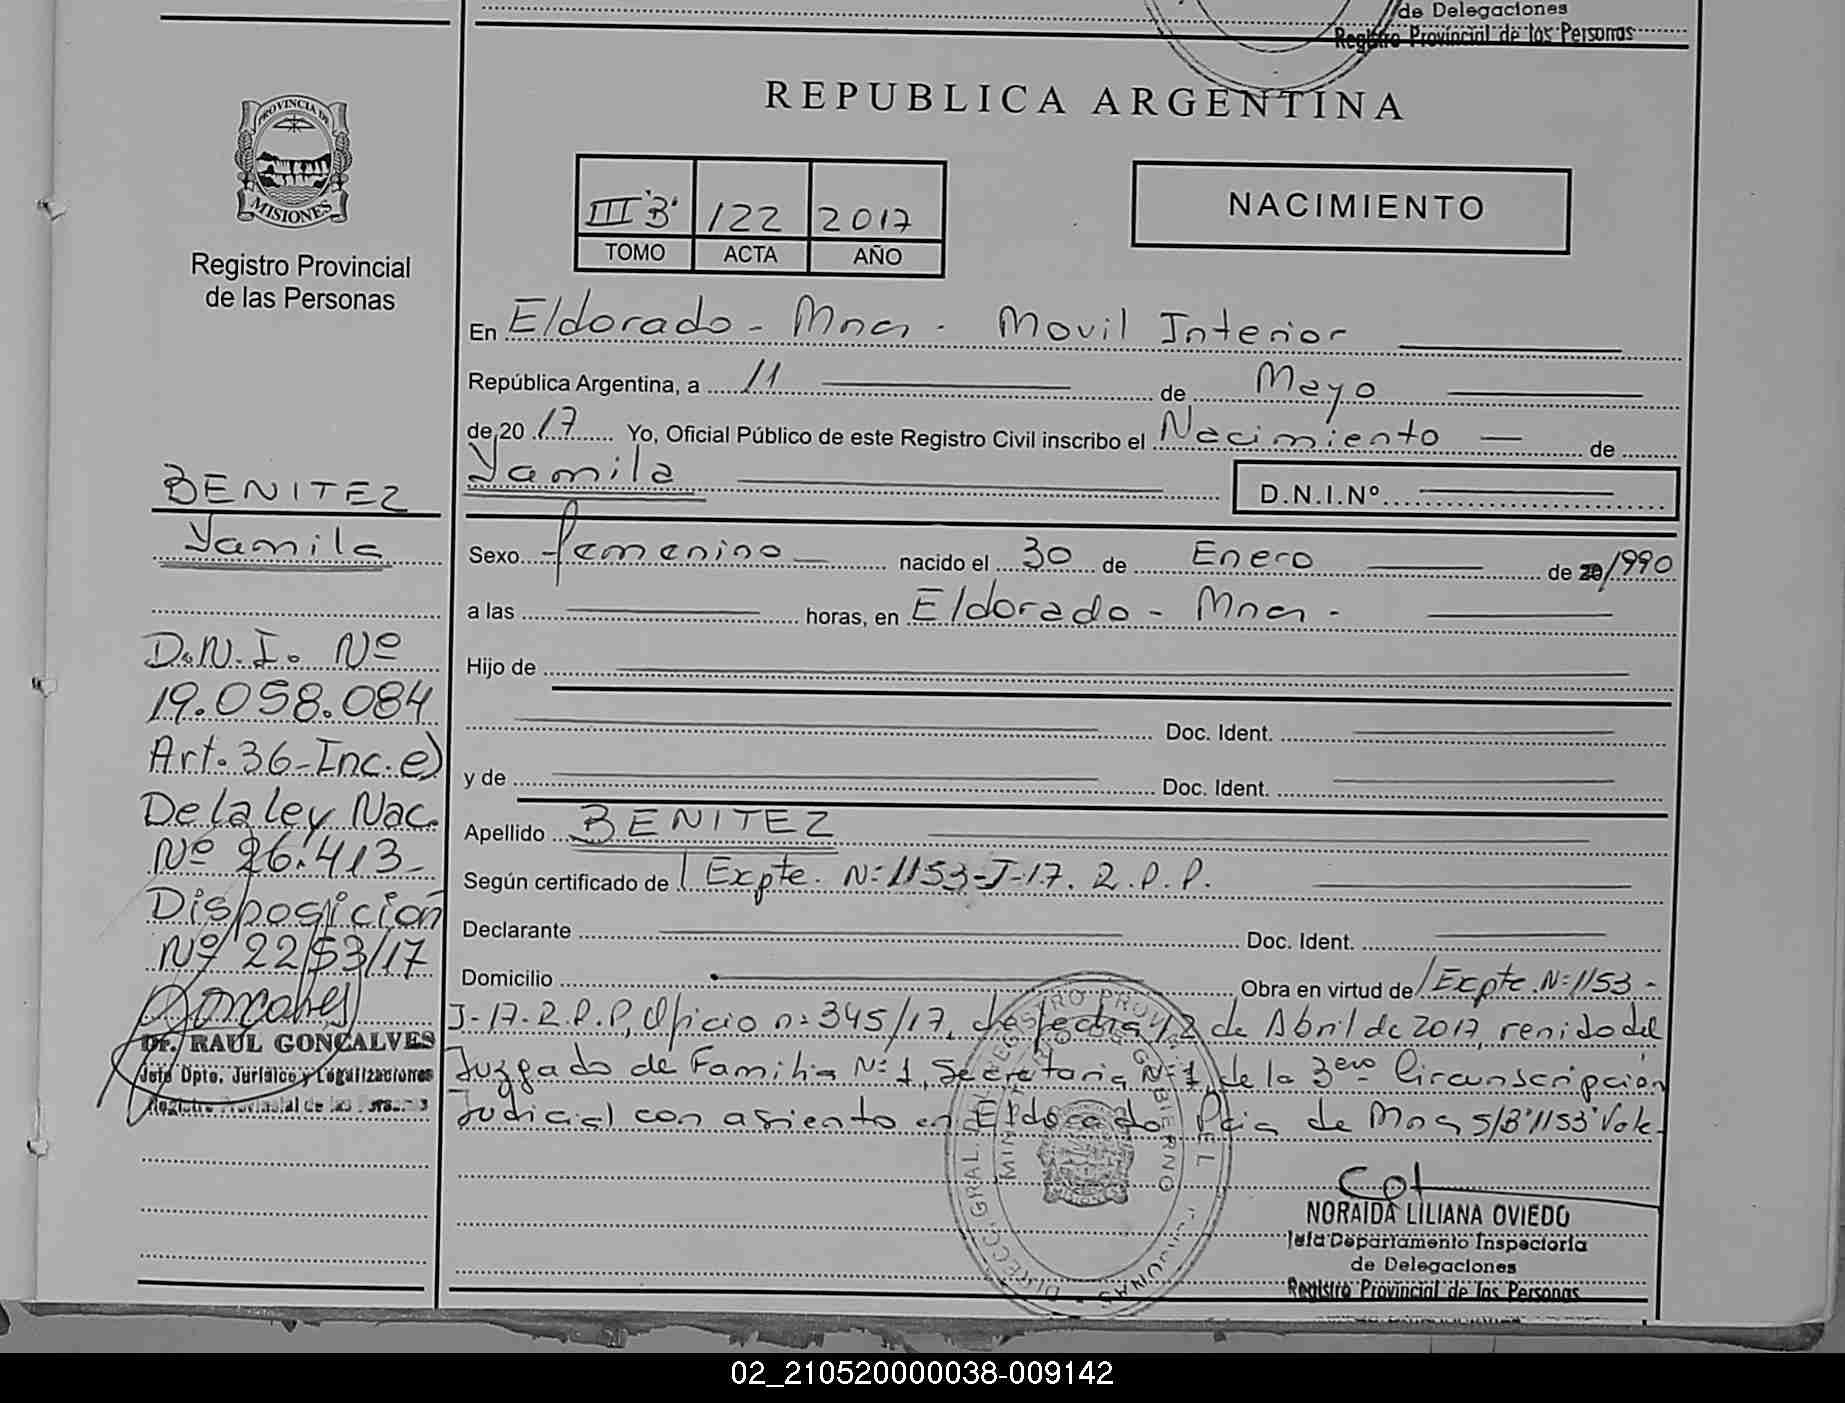 de Delegaciones
Registro Provincial de las Personas
REPUBLICA ARGENTINA
PROVINCIA DE
MISIONES
Registro Provincial
de las Personas
III "B" 122 2017
TOMO ACTA AÑO
NACIMIENTO
En Eldorado - Mnes. Movil Interior
República Argentina, a 11 de Mayo
de 20 17 Yo, Oficial Público de este Registro Civil inscribo el Nacimiento de
Yamila D.N.I.Nº
Sexo femenino nacido el 30 de Enero de 20 1990
a las horas, en Eldorado - Mnes.
Hijo de
Doc. Ident.
y de Doc. Ident.
Apellido BENITEZ
Según certificado de Expte. Nº 1153-J-17. R.P.P.
Declarante Doc. Ident.
Domicilio Obra en virtud de Expte. Nº 1153-
J-17-R.P.P, Oficio nº 345/17, de fecha 12 de Abril de 2017, remido del
Juzgado de Familia Nº 1, Secretaria Nº 1, de la 3era Circunscripción
Judicial con asiento en Eldorado Pcia de Mnes S/B"1153"Vale.
BENITEZ
Yamila
D.N.I. Nº
19.058.084
Art. 36-Inc. e)
De la ley Nac.
Nº 26.413-
Disposición
Nº 2253/17
Dr. RAUL GONCALVES
Jefe Dpto. Jurídico y Legalizaciones
Registro Provincial de las Personas
DIRECC. GRAL. DEL REGISTRO PROVINCIAL DE LAS PERSONAS
MINISTERIO DE GOBIERNO
NORAIDA LILIANA OVIEDO
Jefa Departamento Inspectoria
de Delegaciones
Registro Provincial de las Personas
02_210520000038-009142